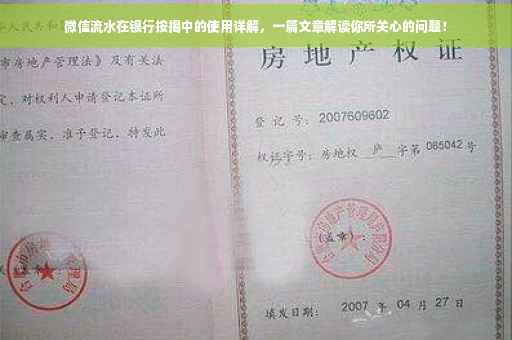 微信流水在银行按揭中的使用详解，一篇文章解读你所关心的问题！
市房地产管理法》及有关法
定，对权利人申请登记本证所
审查属实，准予登记，特发此
房地产权证
登记号：2007609602
权证字号：房地权 庐 字第 065042 号
(盖章)：
填发日期： 2007 年 04 月 27 日